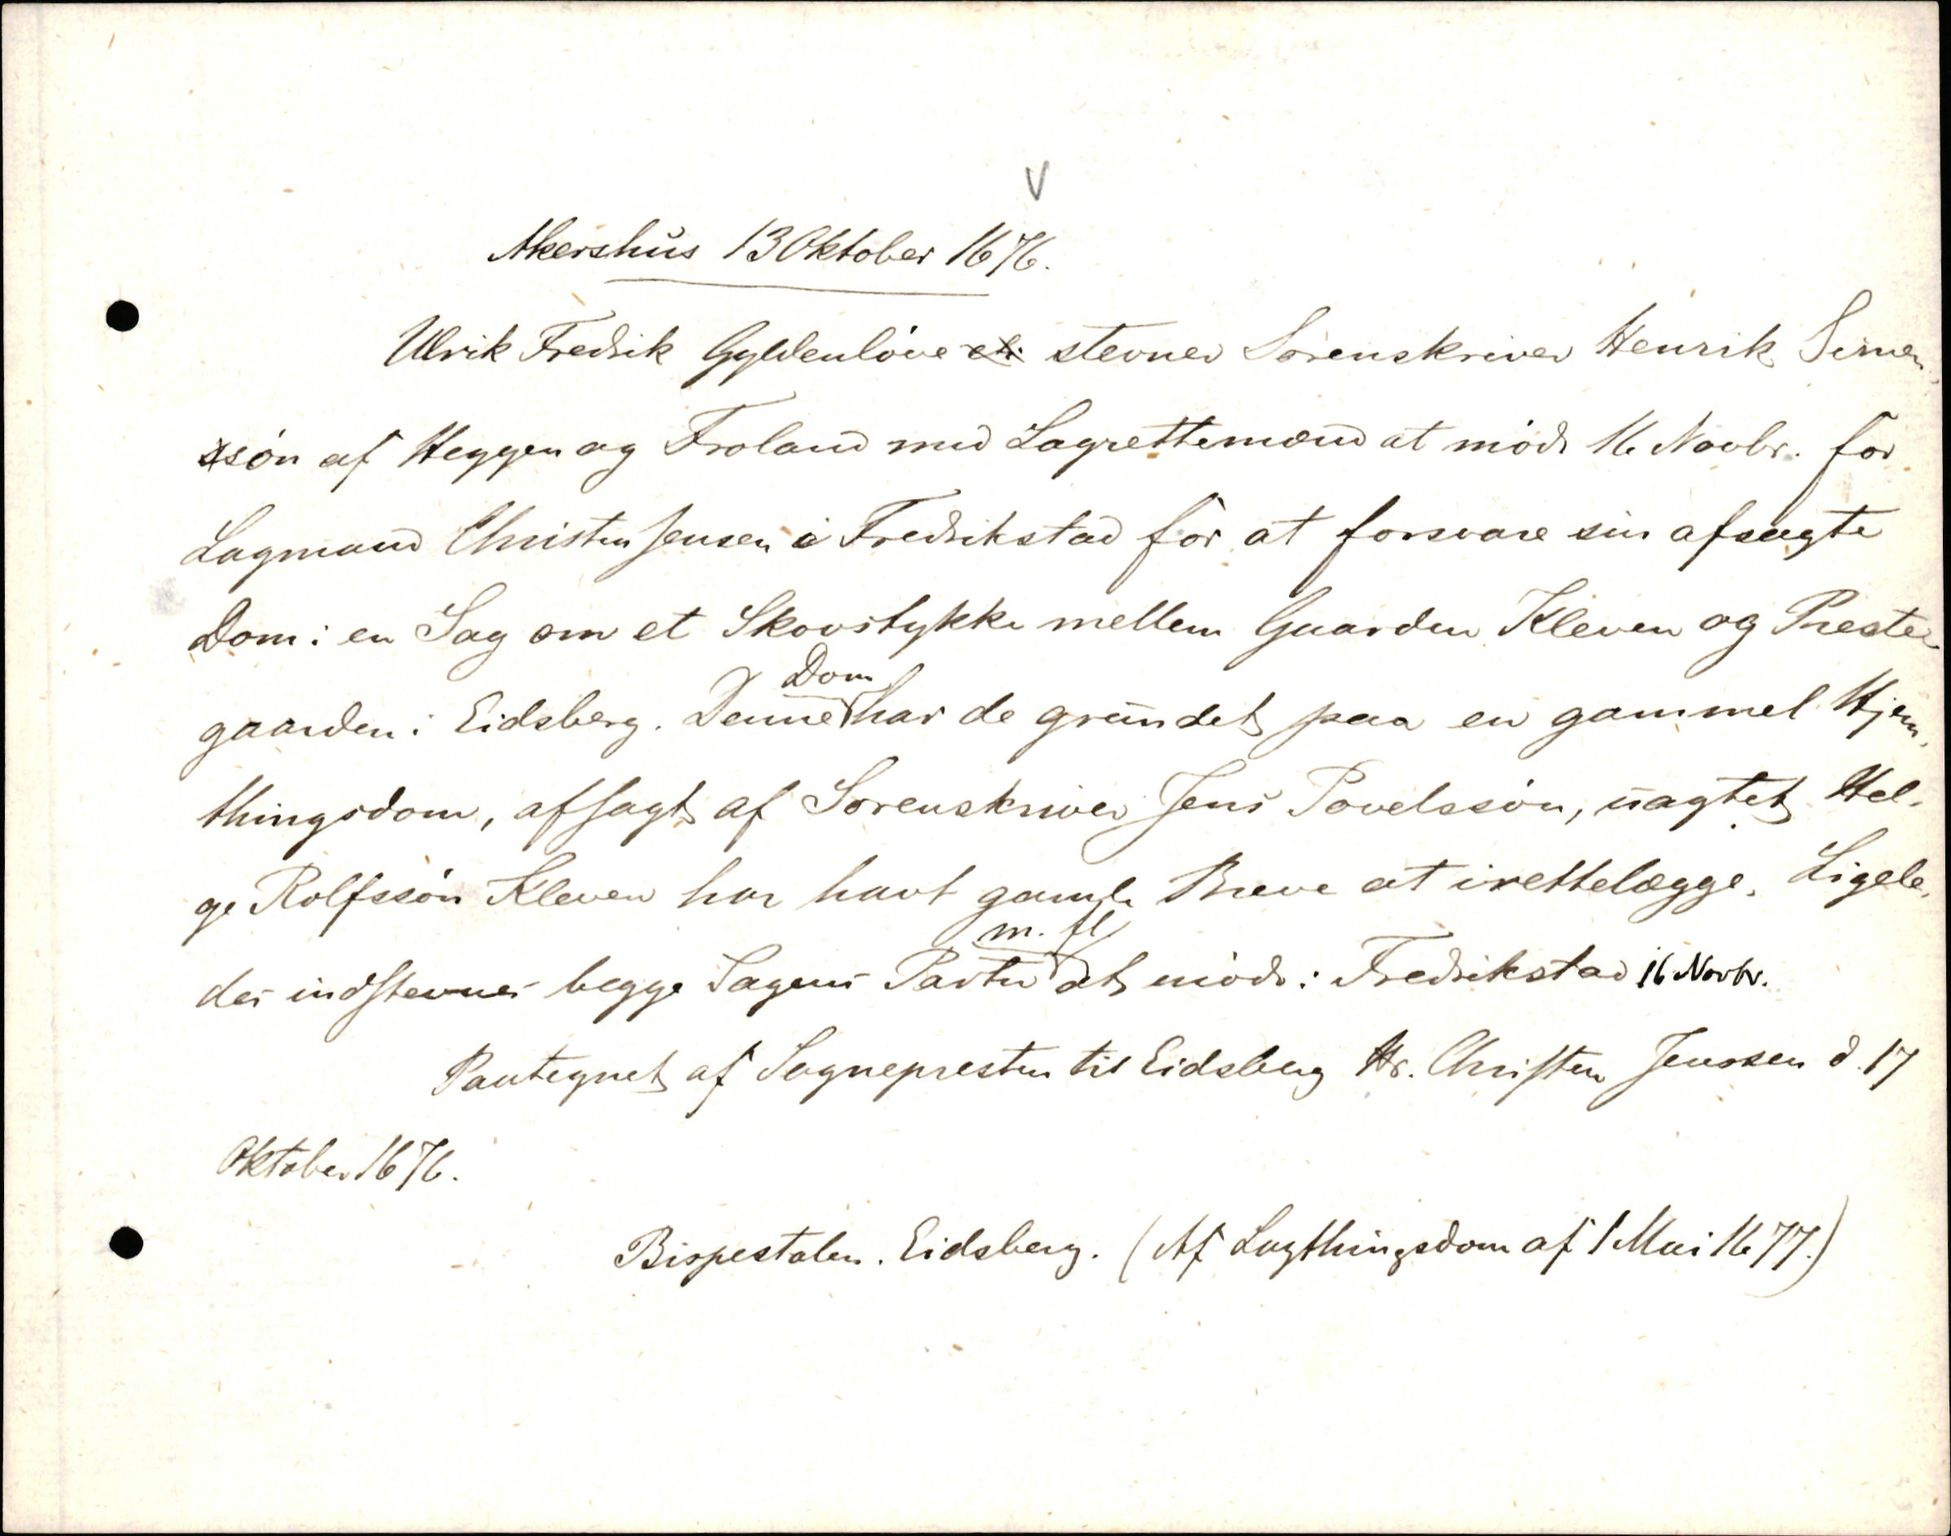 V
Akershus 13 Oktober 1676.
Ulrik Fredrik Gyldenlöve stevner Sorenskriver Henrik Simen,
sön af Heggen og Froland med Lagrettemænd at möde 16 Novbr. for
Lagmand Christen Jensen i Fredrikstad for at forsvare sin afsagte
Dom i en Sag om et Skovstykke mellem Gaarden Kleven og Preste-
gaarden i Eidsberg. Denne Dom har de grundet paa en gammel Hjem,
thingsdom, afsagt af Sorenskriver Jens Povelssön, uagtet Hel-
ge Rolfssön Kleven har havt gamle Breve at irettelægge. Ligele,
des indstevnes begge Sagens Parter m. fl. at möde i Fredrikstad 16 Novbr.
Paategnet af Sognepresten til Eidsberg Hr. Christen Jenssen d. 17
Oktober 1676.
Bispestolen. Eidsberg. (Af Lagthingsdom af 1 Mai 1677.)